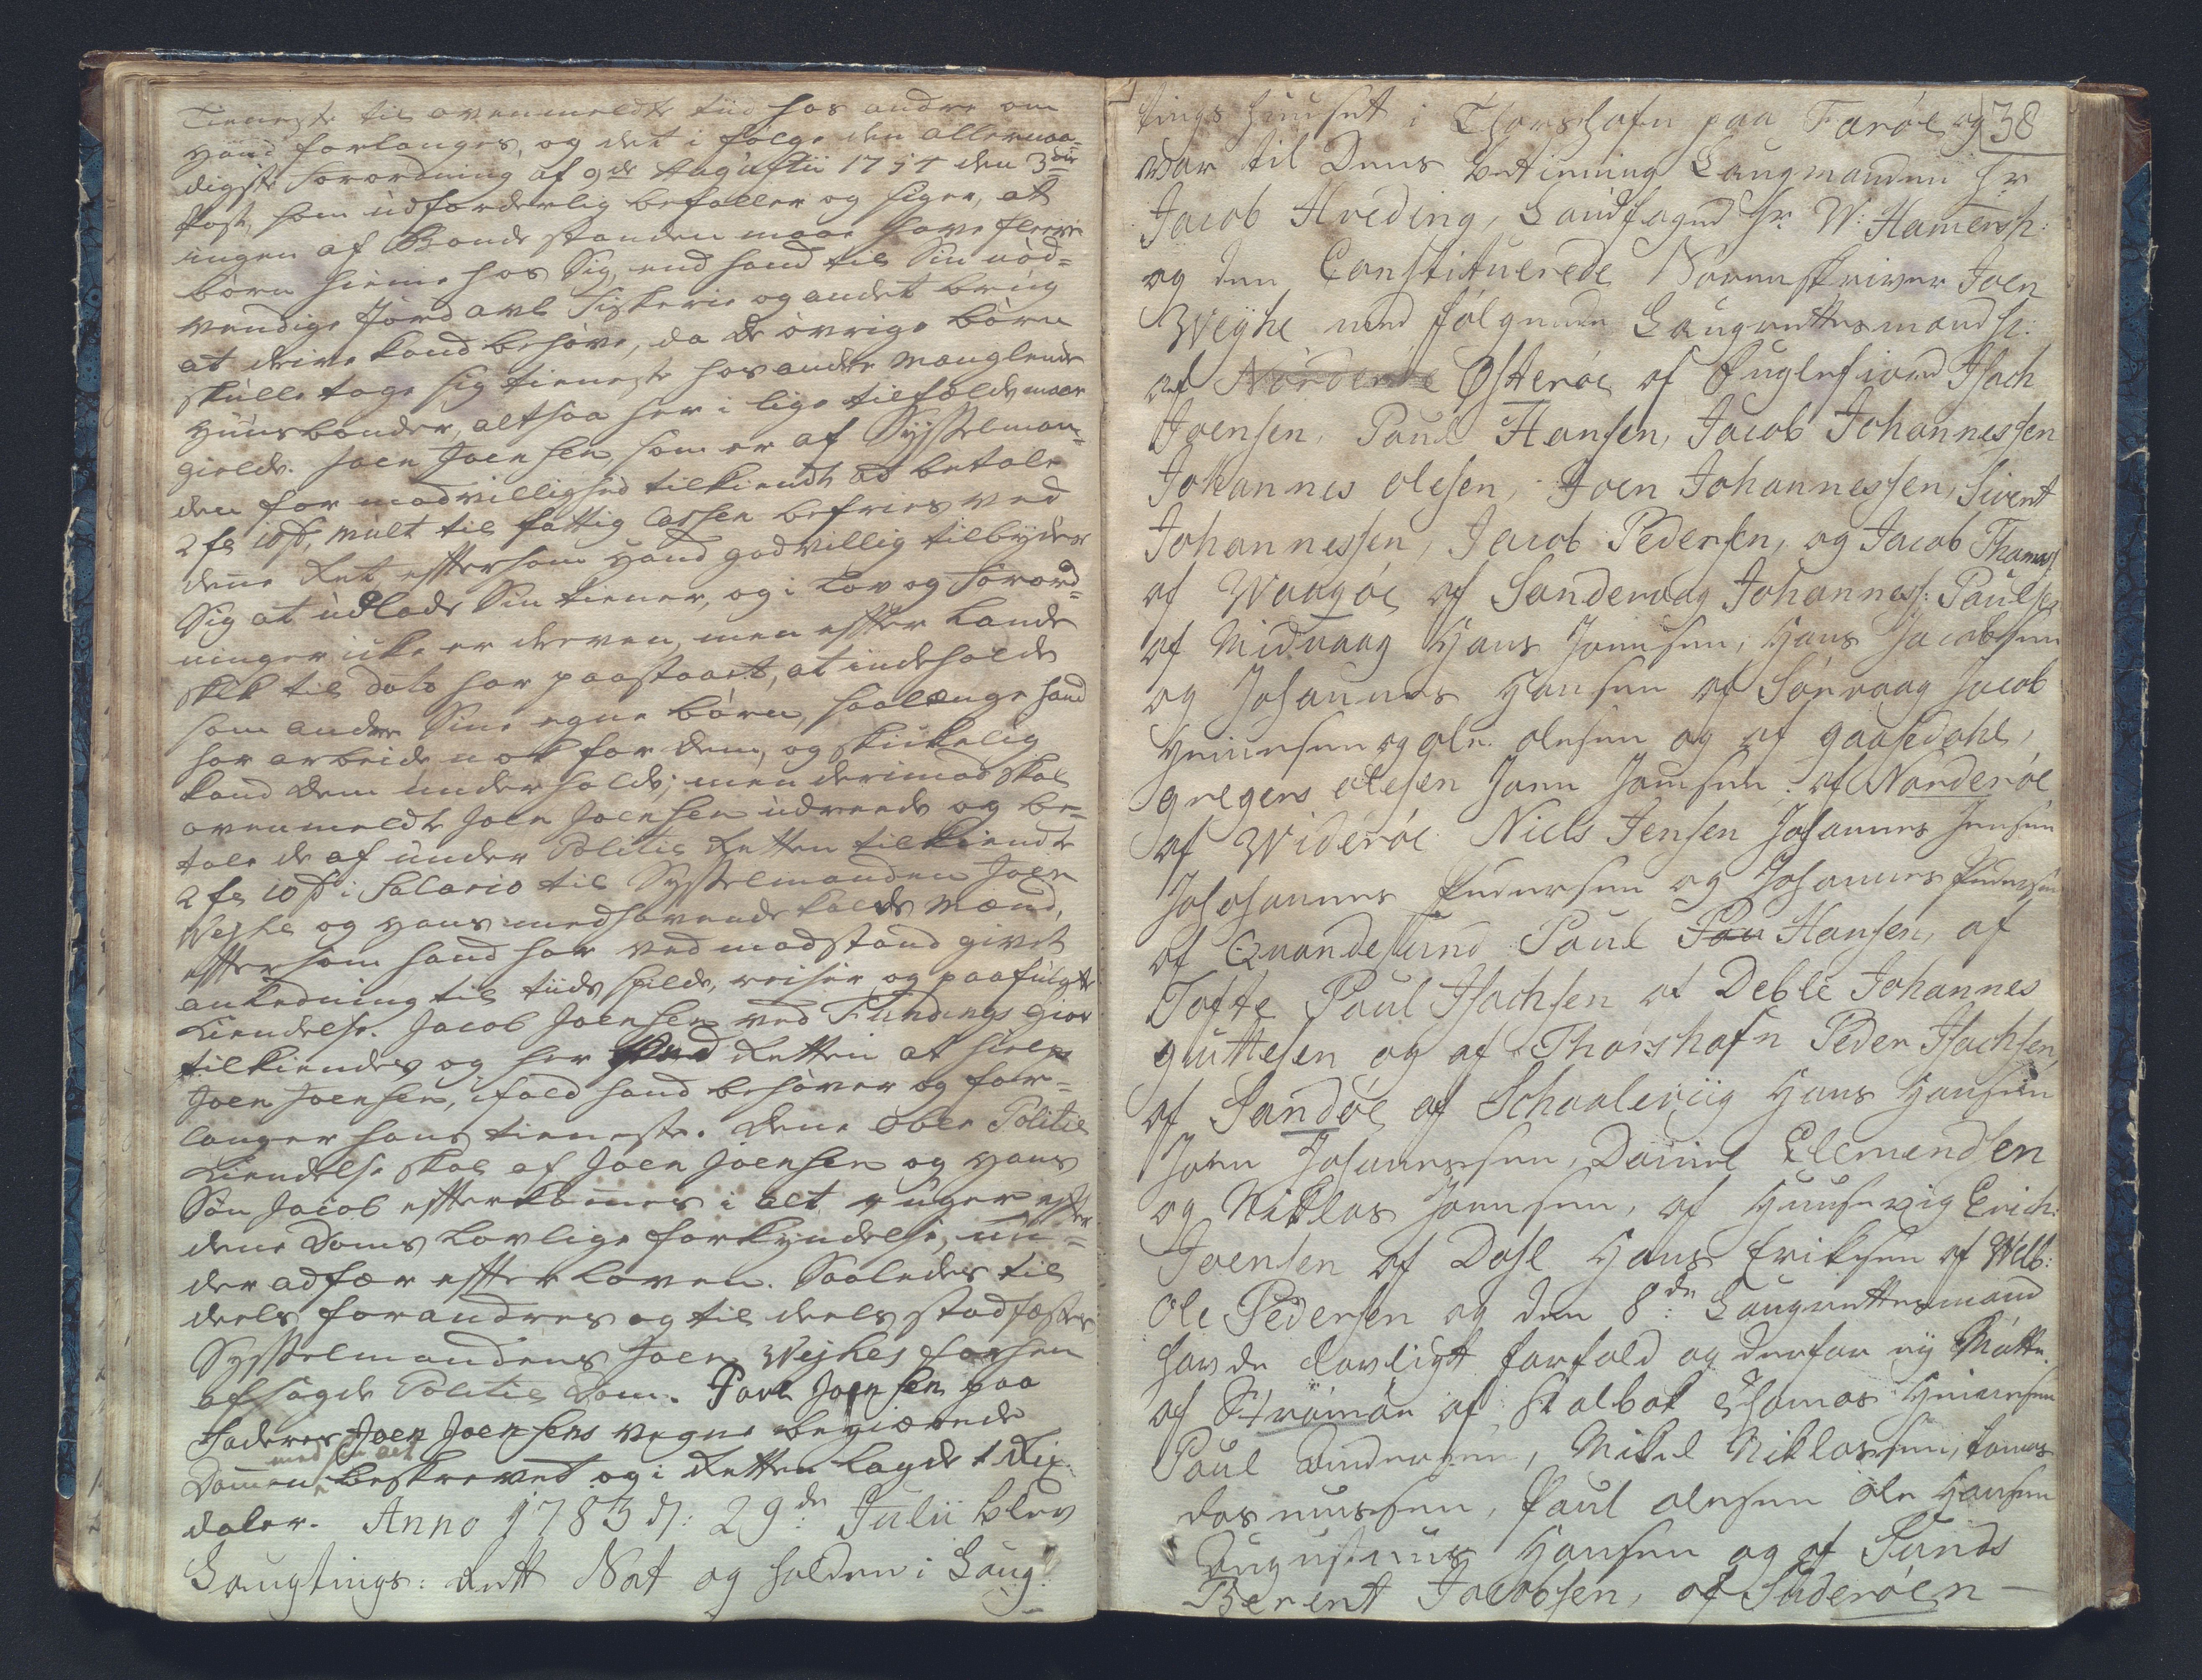 Tieneste til ovenmeldte tiid hos andre om
hand forlanges, og det i følge den allernaa-
digste Forordning af 9de Augustii 1754 den 3die
Post, som udforderlig befaller og siger, at
ingen af Bonde standen maae have fleere
børn hieme hos Sig, end hand til Sin nød-
vendige Jord avl Fiskerie og andet brug
at drive kand behøve, da de øvrige børn
skulle tage sig tieneste hos andre manglende
huusbonder, altsaa her i lige tilfælde maae
gielde. Joen Joensen, som er af Sysselman-
den for modvillighed tilkiendt at betale
2 fs 10 s, mulct til fattig Cassen befries ved
denne Ret, efftersom hand godvillig tilbyder
Sig at udlade Sin tiener, og i Lov og Forord-
ninger icke er dreven, men effter Lands
skik til dato har paastaaet, at indeholde
som andre Sine egne børn, saalænge hand
har arbeide nok for dem, og skickelig
kand dem underholde; men derimod skal
ovenmeldte Joen Joensen udreede og be-
tale de af under Politie Retten tilkiendte
2 fs 10 s i Salario til Sysselmanden Joen
Weyhe og hans medhavende Mænd,
efftersom hand har ved modstand givet
anledning til tiids spilde, reiser og paafulgte
Kiendelse. Jacob Joensen ved Fundings Giov
tilkiendes og her ved Retten at hielpe
Joen Joensen, ifald hand behøver og for-
langer hans tieneste. Denne Ober Politie
Kiendelse skal af Joen Joensen og hans
Søn Jacob effterkommes i alt 4 uger effter
denne Doms Lovlige forkyndelse, un-
der adfær effter Loven. Saaledes til
deels forandres og til deels stadfæstes
Sysselmandens Joen Weyhes forhen
afsagde Politie Dom. Povl Joensen paa
Faderen Joen Joensens vegne begiærede
Dommen med beskrevet og i Retten lagde 1 Rix-
daler. Anno 1783 d: 29de Julii blev
Laugtings: Rett Sat og holden i Laug-
38
tings huuset i Thorshafn paa Farøe, og
war til Dens betienning Laugmanden Hr
Jacob Hveding, Landfoged Hr. W: Hamersh:
og den Constituerede Sorenskriver Joen
Weyhe med følgende Laugrettesmænd sc:
af Norderøe Østerøe af Fuglefiord Isach
Joensen, Paul Hansen, Jacob Johannessen
Johannes Olesen, Joen Johannessen, Sivert
Johannessen, Jacob Pedersen, og Jacob Thomas:
af Waagøe af Sandevaag Johanness: Paulsen
af Midvaag Hans Joensen, Hans Jacobsen
og Johannes Hansen af Sørvaag Jacob
Heinesen og Ole Olesen og af Gaasedahl,
Gregers Olesen Joen Joensen. af Norderøe
af Widerøe Niels Jensen Johannes Jensen
Johannes Pedersen og Johannes Pedersen
af Quandesund Paul Pau Hansen, af
Tofte Paul Isachsen af Deble Johannes
Guttesen og af Thorshafn Peder Isachsen,
af Sandøe af Schaaleviig Hans Hansen
Joen Johannessen, Daniel Clemendsen
og Nicklas Joensen, af Huusevig Erich:
Joensen af Dahl Hans Eriksen af Welb:
Ole Pedersen og den 8de Laugrettesmand
havde lovligt forfald og derfor ey Mötte.
af Strömön af Kalbak Thomas Heinesen
Paul Andersen, Mikel Niklassen, Tomas
Rasmussen, Paul Olesen Ole Hansen
Augustinus Hansen og af Sunds
Berent Jacobsen, af Suderöen